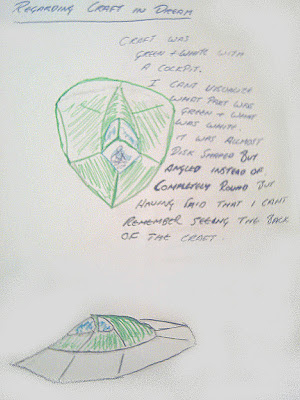 REGARDING CRAFT IN DREAM
CRAFT WAS
GREEN + WHITE WITH
A COCKPIT.
I CANT VISUALISE
WHAT PART WAS
GREEN + WHAT
WAS WHITE.
IT WAS ALMOST
DISK SHAPED BUT
ANGLED INSTEAD OF
COMPLETELY ROUND BUT
HAVING SAID THAT I CANT
REMEMBER SEEING THE BACK
OF THE CRAFT.